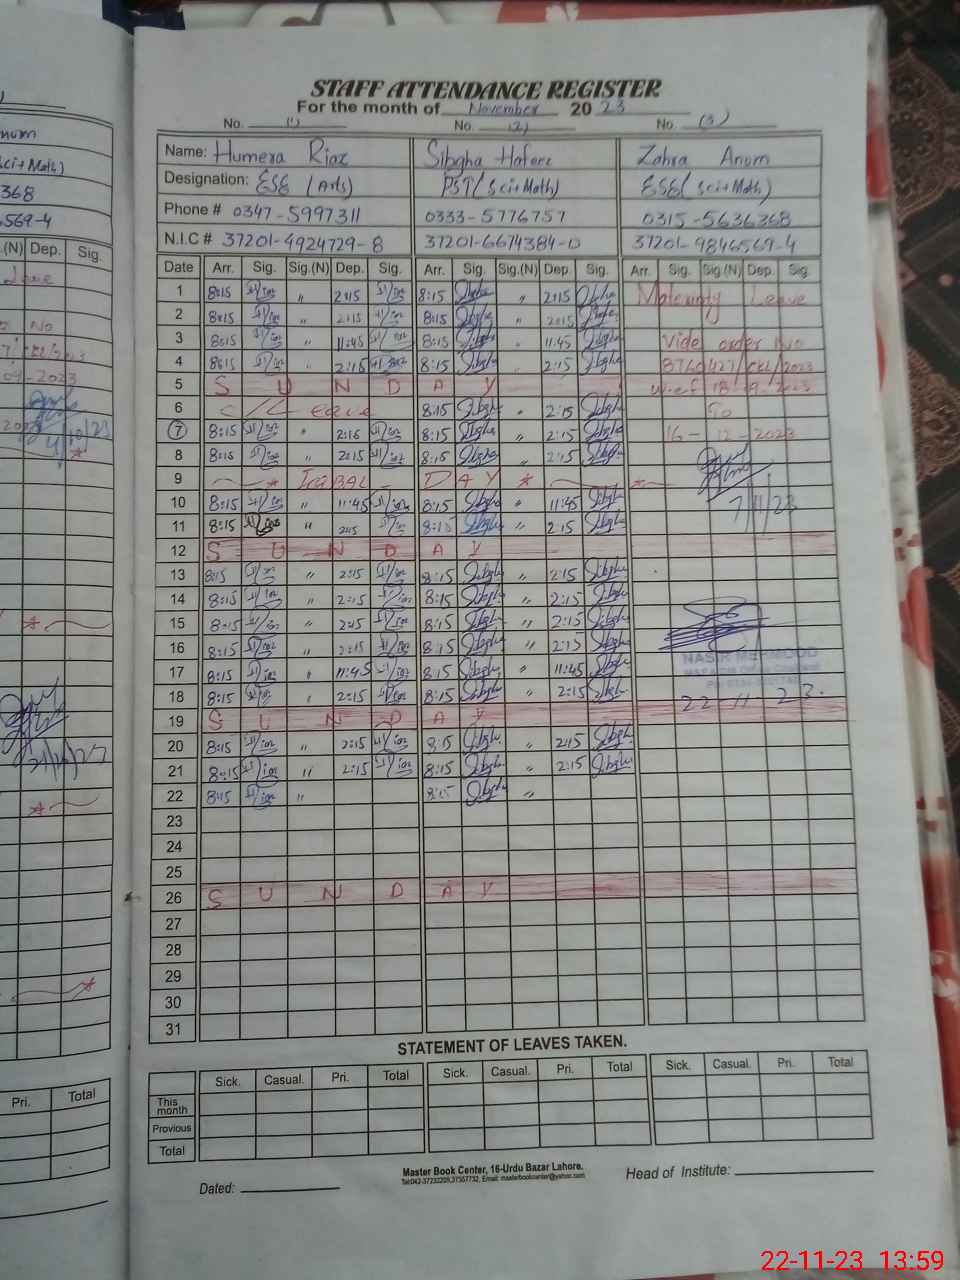 STAFF ATTENDANCE REGISTER
For the month of November 2023
No. (1) No. (2) No. (3)
Name: Humera Riaz Sibgha Hafeez Zahra Anum
Designation: ESE (Arts) PST (Sci+Math) ESE (Sci+Math)
Phone # 0347-5997311 0333-5776757 0315-5636368
N.I.C # 37201-4924729-8 37201-6674384-0 37201-9846569-4
Date Arr. Sig. Sig.(N) Dep. Sig. Arr. Sig. Sig.(N) Dep. Sig. Arr. Sig. Sig.(N) Dep. Sig.
1 8:15 〃 2:15 8:15 〃 2:15 Maternity Leave
2 8:15 〃 2:15 8:15 〃 2:15
3 8:15 〃 11:45 8:15 〃 11:45 Vide order No
4 8:15 〃 2:15 8:15 〃 2:15 CKL/2023
5 S U N D A Y w.e.f 18-9-2023
6 C/Leave 8:15 〃 2:15 To
7 8:15 〃 2:15 8:15 〃 2:15 16-12-2023
8 8:15 〃 2:15 8:15 〃 2:15
9 IQBAL DAY
10 8:15 〃 11:45 8:15 〃 11:45 7/11/23
11 8:15 〃 2:15 8:15 〃 2:15
12 S U N D A Y
13 8:15 〃 2:15 8:15 〃 2:15
14 8:15 〃 2:15 8:15 〃 2:15
15 8:15 〃 2:15 8:15 〃 2:15
16 8:15 〃 2:15 8:15 〃 2:15
17 8:15 〃 11:45 8:15 〃 11:45 NASIR MEHMOOD
18 8:15 〃 2:15 8:15 〃 2:15 22 11 23
19 S U N D A Y
20 8:15 〃 2:15 8:15 〃 2:15
21 8:15 〃 2:15 8:15 〃 2:15
22 8:15 〃 8:15 〃
23
24
25
26 S U N D A Y
27
28
29
30
31
STATEMENT OF LEAVES TAKEN.
Sick. Casual. Pri. Total Sick. Casual. Pri. Total Sick. Casual. Pri. Total
This month
Previous
Total
Master Book Center, 16-Urdu Bazar Lahore.
Dated: Head of Institute:
22-11-23 13:59